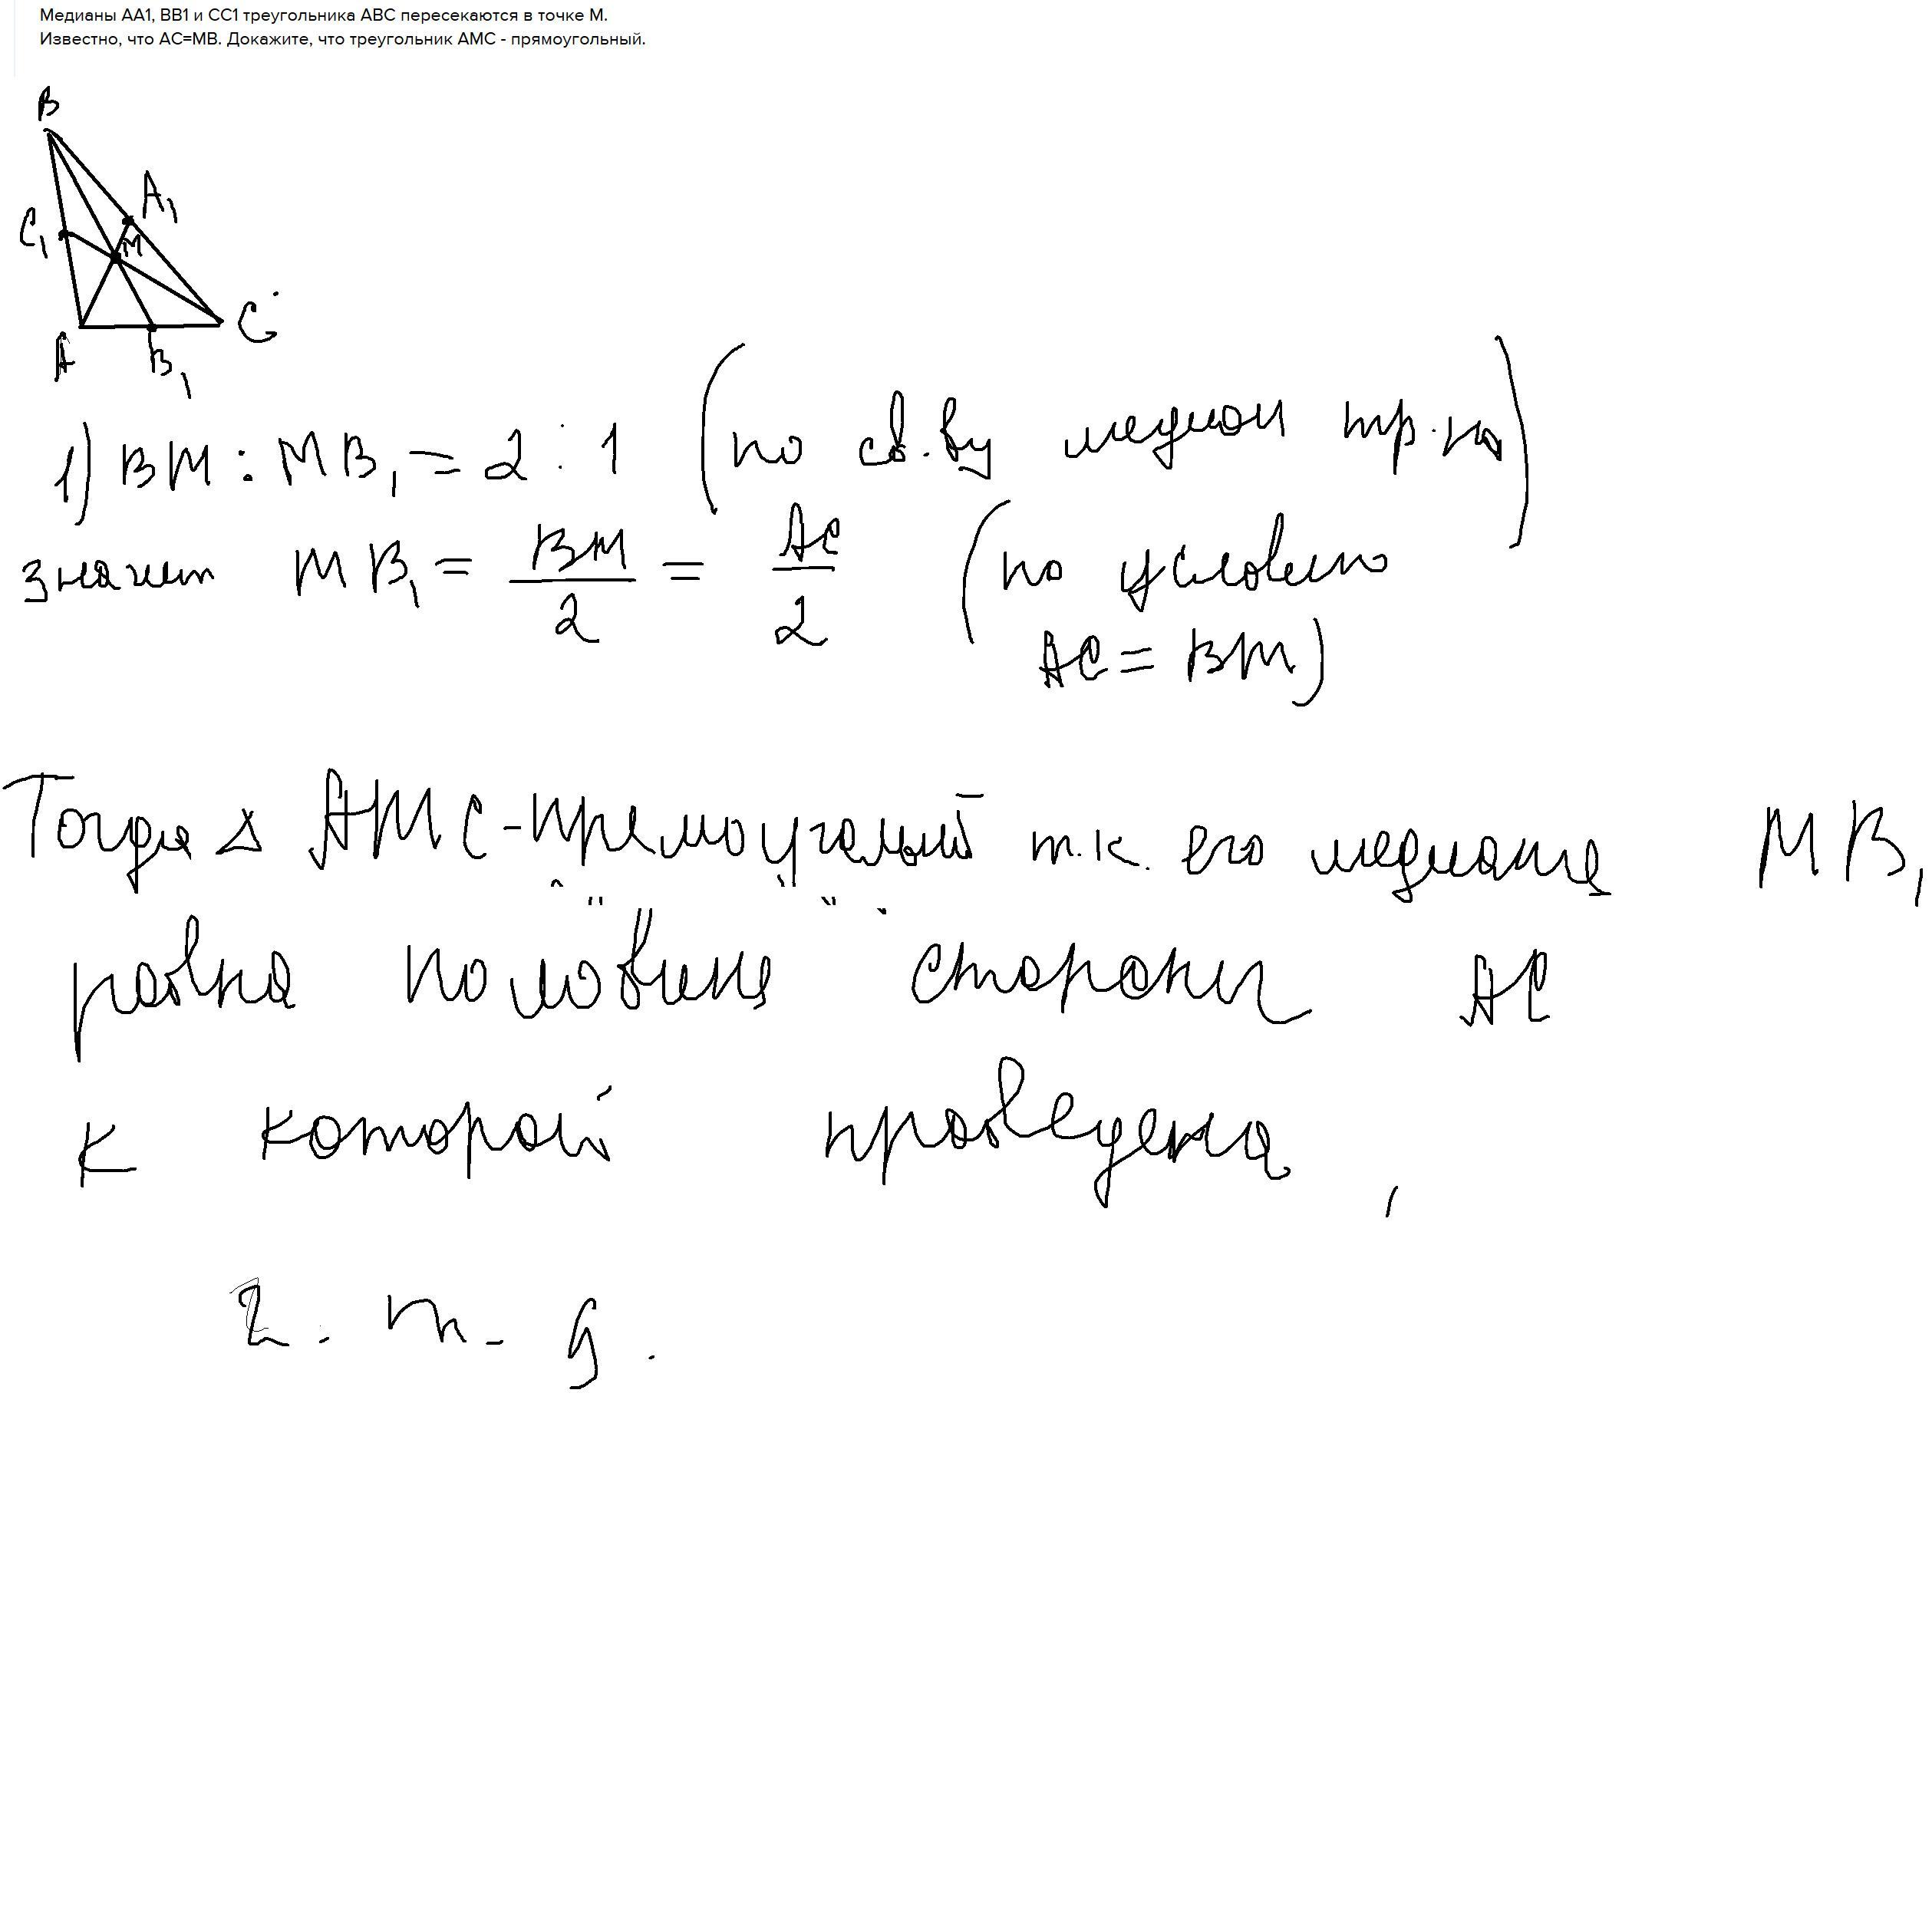 Медианы АА1, ВВ1 и СС1 треугольника АВС пересекаются в точке М.
Известно, что АС=МВ. Докажите, что треугольник АМС - прямоугольный.
B
A₁
C₁
M
C
A
B₁
1) BM : MB₁ = 2 : 1 (по св.ву медиан тр.ка)
значит MB₁ = BM/2 = AC/2 (по условию
AC = BM)
Тогда △ АМС - прямоугольный т.к. его медиана MB₁
равна половине стороны АС
к которой проведена,
ч. т. д.